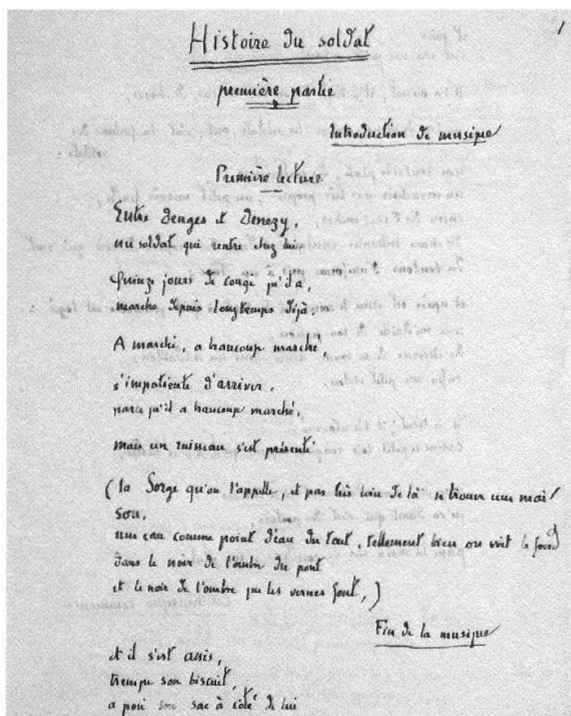 1
Histoire du soldat
première partie
Introduction de musique
Première lecture
Entre Denges et Denezy,
un soldat qui rentre chez lui.
Quinze jours de congé qu'il a,
marche depuis longtemps déjà.
A marché, a beaucoup marché,
s'impatiente d'arriver,
parce qu'il a beaucoup marché,
mais un ruisseau s'est présenté
(la Sorge qu'on l'appelle, et pas très loin de là se trouve une mai/
son,
une eau comme point d'eau du tout, tellement bien on voit le fond
dans le noir de l'ombre du pont
et le noir de l'ombre que les vernes font,)
Fin de la musique
et il s'est assis,
trempe son biscuit,
a posé son sac à côté de lui